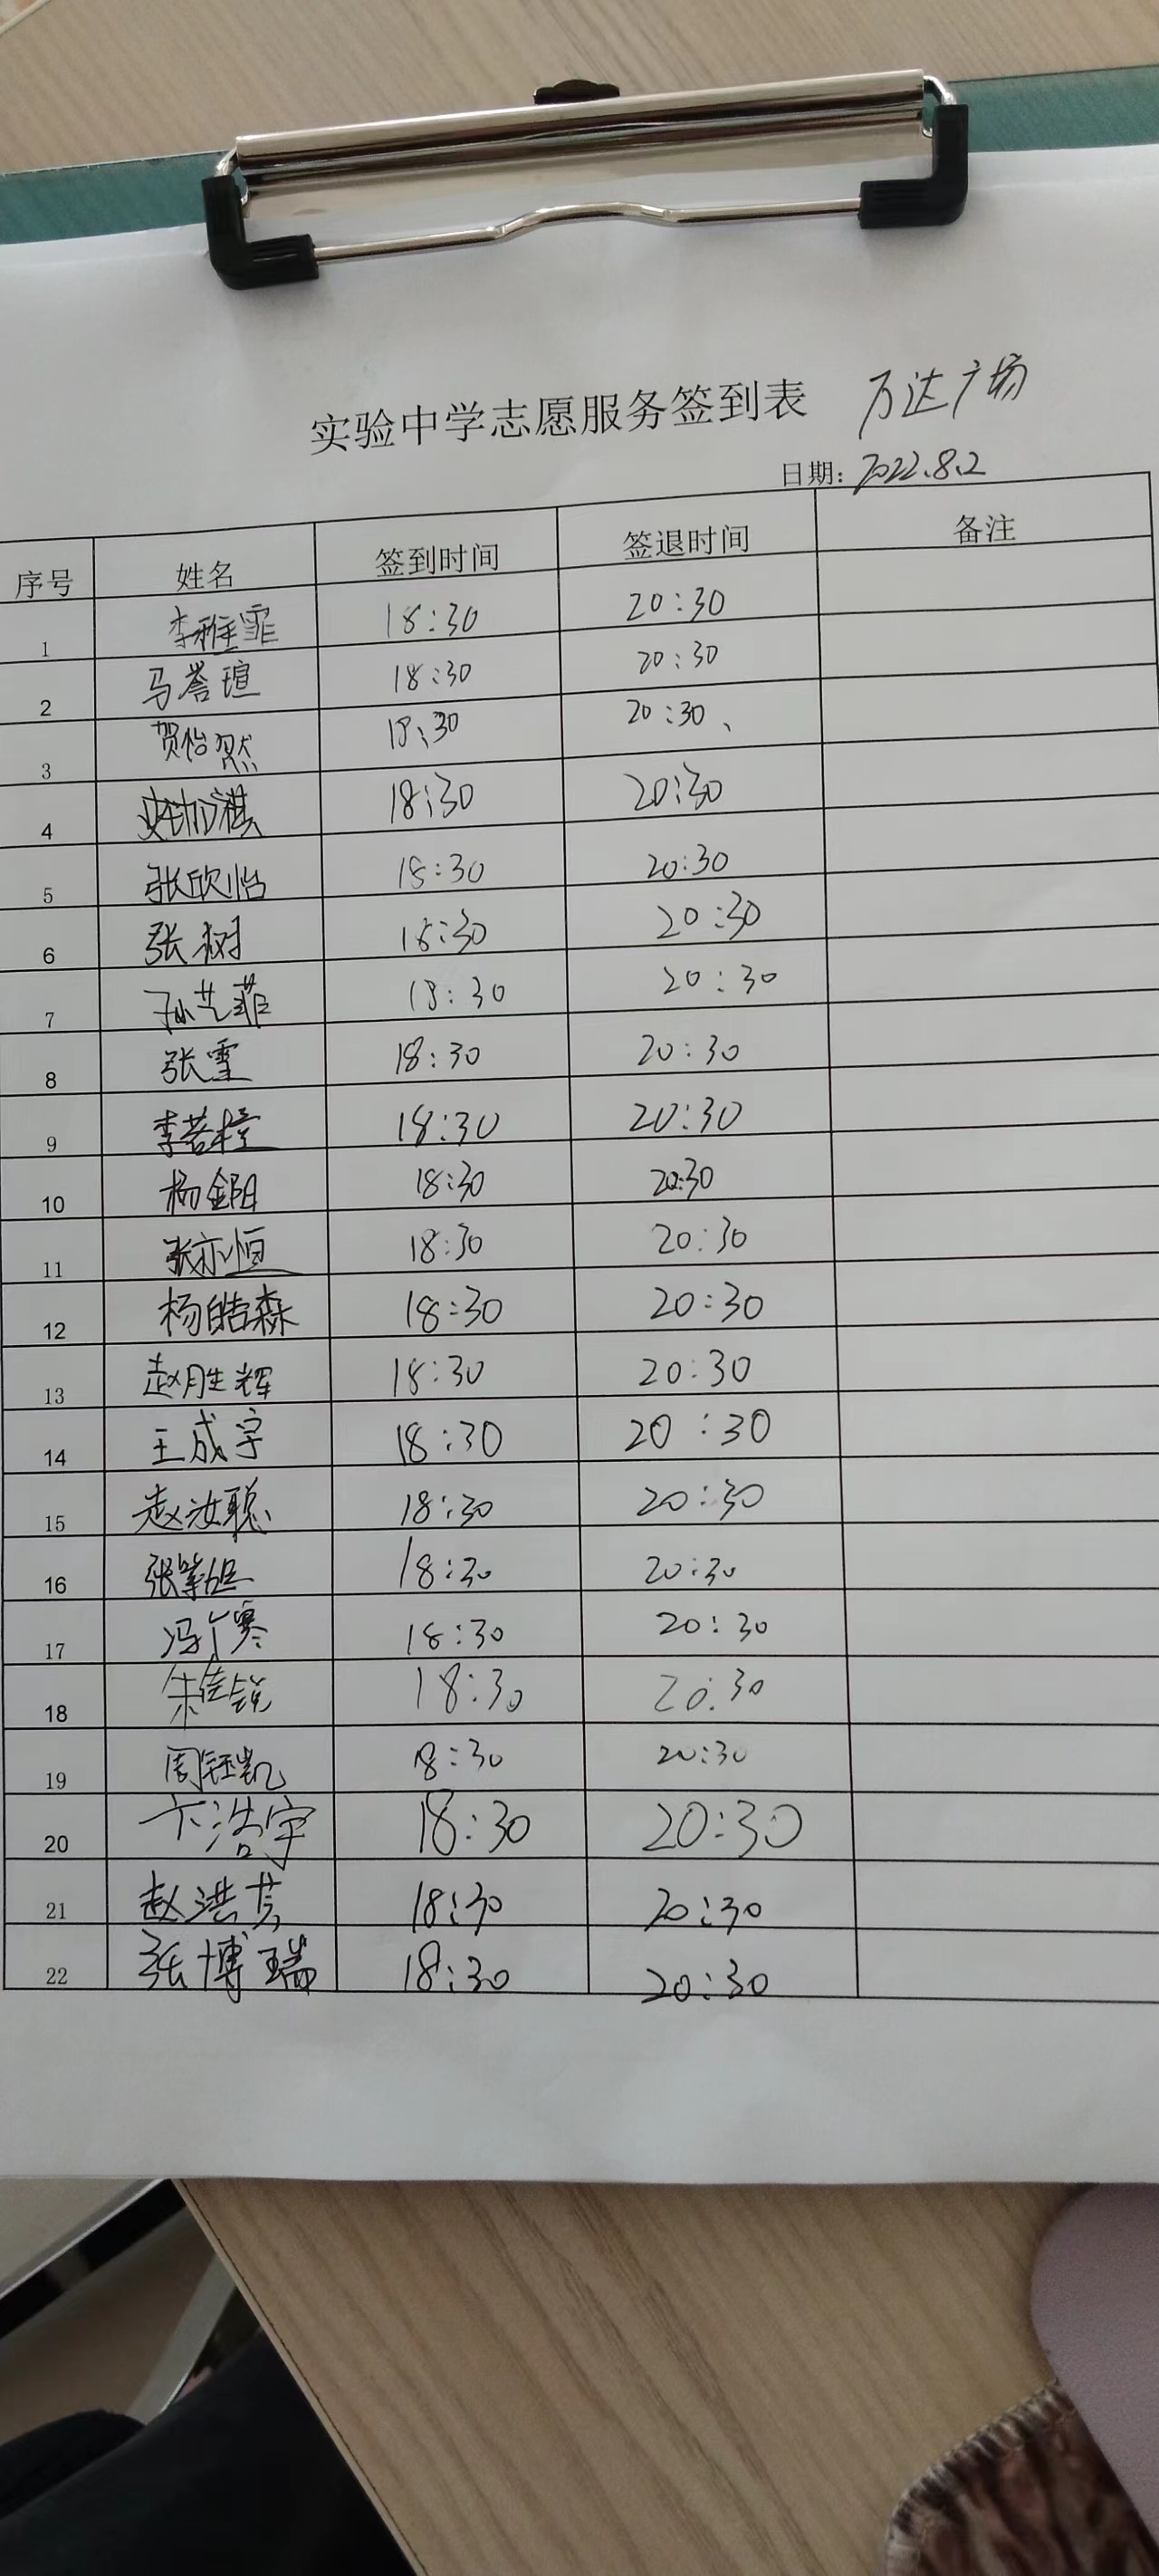 实验中学志愿服务签到表 万达广场
日期: 2022.8.2
序号 姓名 签到时间 签退时间 备注
1 李雅霏 18:30 20:30
2 马誉瑄 18:30 20:30
3 贺怡然 18:30 20:30、
4 18:30 20:30
5 张欣怡 18:30 20:30
6 张树 18:30 20:30
7 孙艺菲 18:30 20:30
8 张雪 18:30 20:30
9 李若橙 18:30 20:30
10 杨金阳 18:30 20:30
11 张亦恒 18:30 20:30
12 杨皓森 18:30 20:30
13 赵胜辉 18:30 20:30
14 王成宇 18:30 20:30
15 赵汝聪 18:30 20:30
16 张 18:30 20:30
17 冯 寒 18:30 20:30
18 朱 锐 18:30 20:30
19 周钰凯 18:30 20:30
20 卞浩宇 18:30 20:30
21 赵洪 18:30 20:30
22 张博瑞 18:30 20:30